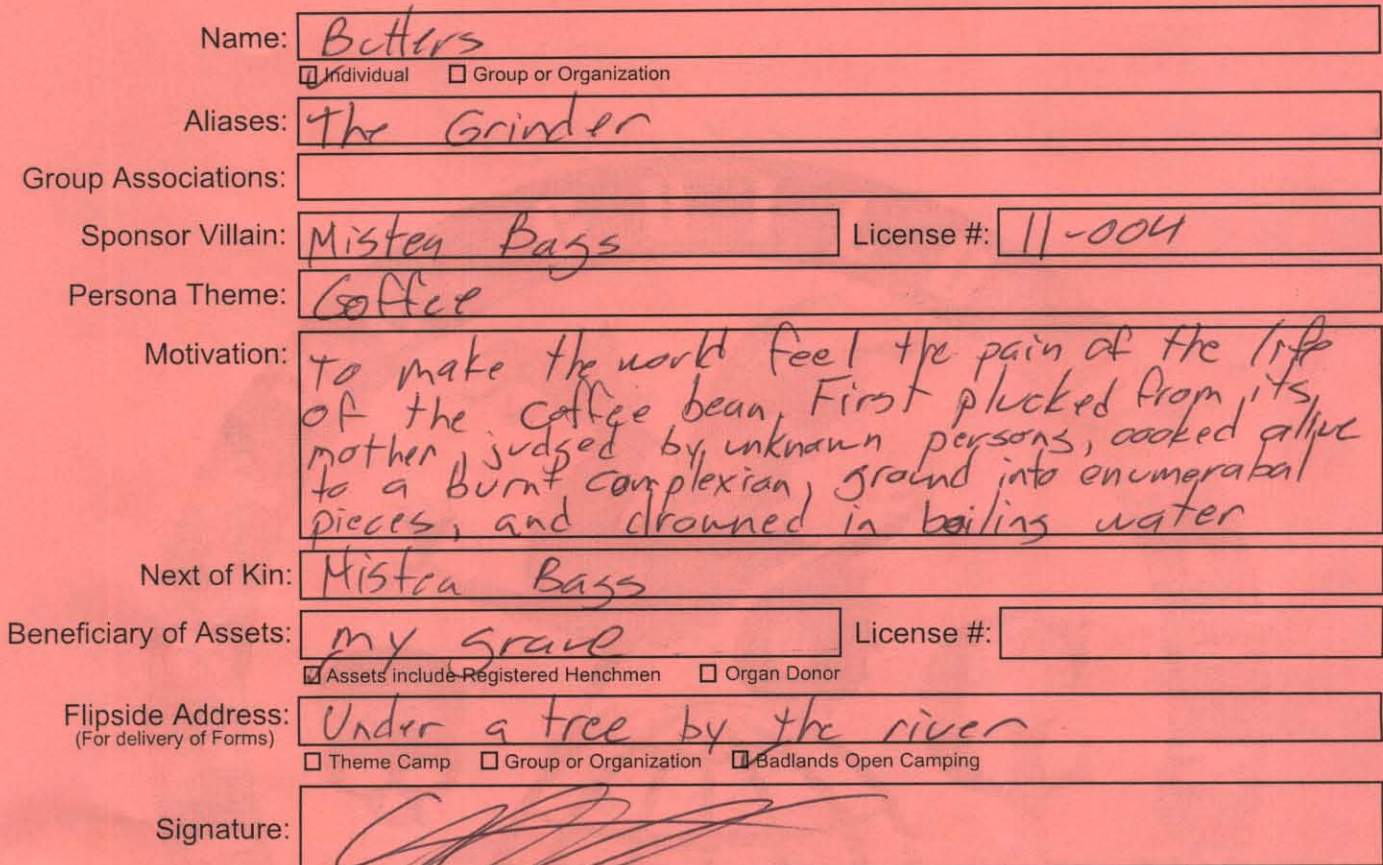 Name: Butters
Individual Group or Organization
Aliases: The Grinder
Group Associations:
Sponsor Villain: Mistea Bags License #: 11-004
Persona Theme: Coffee
Motivation: To make the world feel the pain of the life
of the coffee bean, First plucked from its
mother, judged by unknown persons, cooked alive
to a burnt complexian, ground into enumerabal
pieces, and drowned in boiling water
Next of Kin: Mistea Bags
Beneficiary of Assets: my grave License #:
Assets include Registered Henchmen Organ Donor
Flipside Address: Under a tree by the river
(For delivery of Forms)
Theme Camp Group or Organization Badlands Open Camping
Signature: